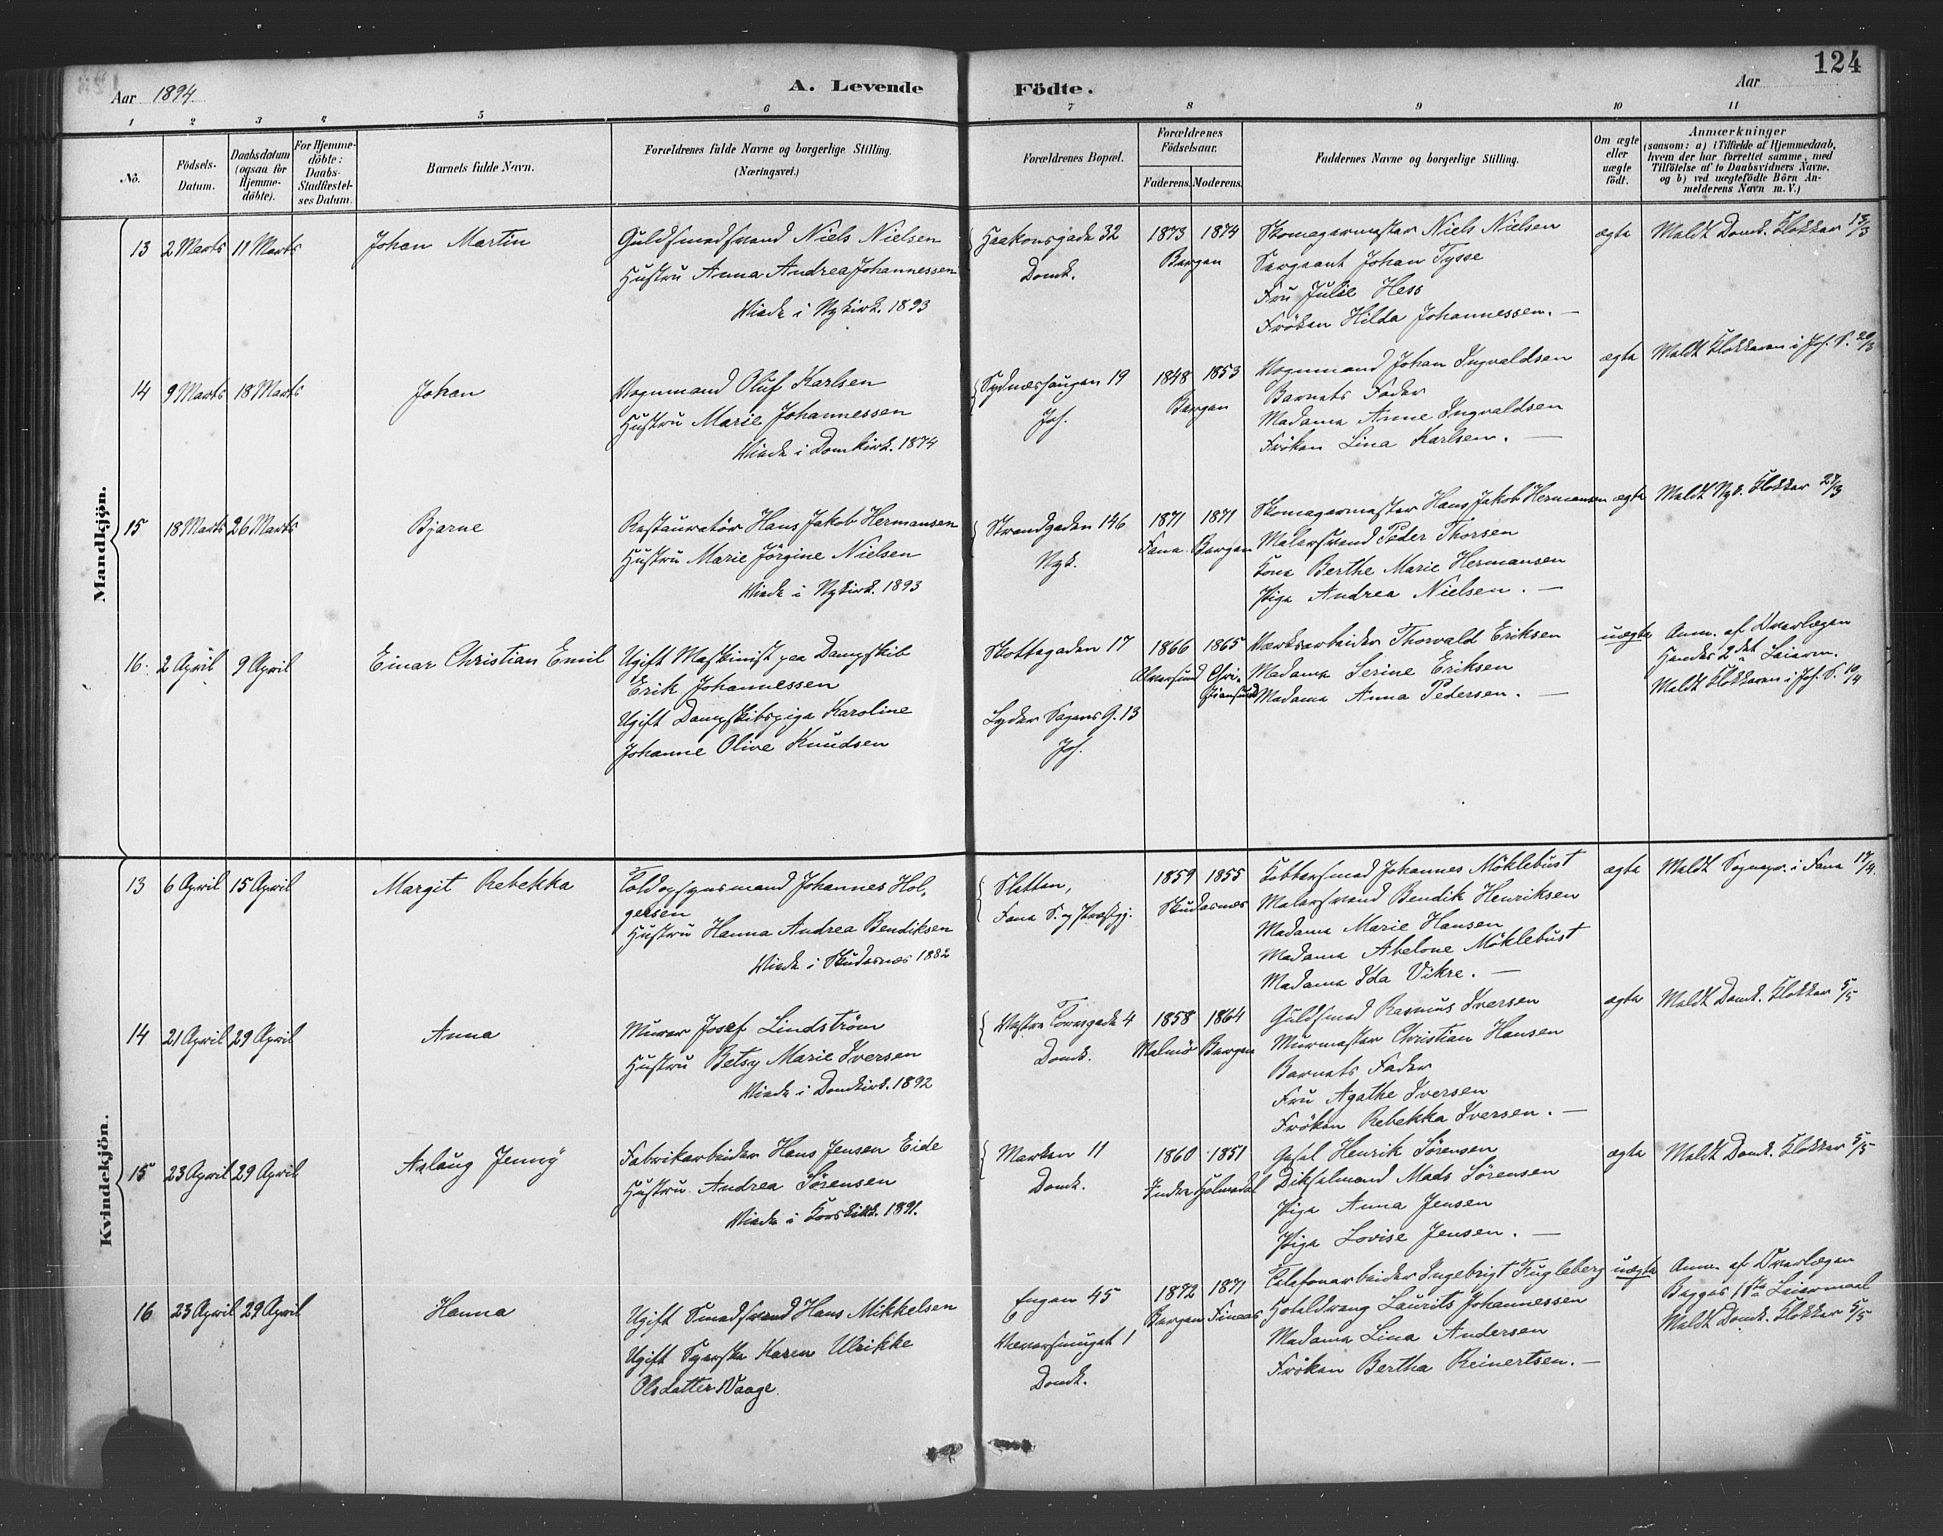 124
Aar 1894.
A. Levende Födte.
Aar
1 2 3 4 5 6 7 8 9 10 11
No.
Födsels-
Datum.
Daabsdatum
(ogsaa for
Hjemme-
döbte).
For Hjemme-
döbte:
Daabs-
Stadfæstel-
ses Datum.
Barnets fulde Navn.
Forældrenes fulde Navne og borgerlige Stilling.
(Næringsvei.)
Forældrenes Bopæl.
Forældrenes
Födselsaar.
Faderens. Moderens.
Faddernes Navne og borgerlige Stilling.
Om ægte
eller
uægte
födt.
Anmærkninger
(saasom: a) i Tilfælde af Hjemmedaab,
hvem der har forrettet samme, med
Tilföielse af to Daabsvidners Navne,
og b) ved uægtefödte Börn An-
melderens Navn m. V.)
Mandkjön.
13 2 Marts 11 Marts Johan Martin
Guldsmedsvend Niels Nielsen
Hustru Anna Andrea Johannessen
Viede i Nykirk. 1893
Haakonsgade 32
Domk.
1873 1874
Bergen
Skomagermester Niels Nielsen
Sergeant Johan Tysse
Fru Julie Hess
Fröken Hilda Johannessen. —
ægte
Meldt Domk. Klokker 13/3
14 9 Marts 18 Marts Johan
Vognmand Oluf Karlsen
Hustru Marie Johannessen
Viede i Domkirk. 1874
Sydneshaugen 19
Joh.
1848 1853
Bergen
Vognmand Johan Ingvaldsen
Barnets Fader
Madame Anne Ingvaldsen
Fröken Lina Karlsen. —
ægte
Meldt Klokkeren i Joh. S. 20/3
15 18 Marts 26 Marts Bjarne
Restauratör Hans Jakob Hermansen
Hustru Marie Jörgine Nielsen
Viede i Nykirk. 1893
Strandgaden 146
Nyk.
1871 1871
Fana. Bergen
Skomagermester Hans Jakob Hermansen
Malersvend Peder Thorsen
Kone Berthe Marie Hermansen
Pige Andrea Nielsen. —
ægte
Meldt Nyk. Klokker 27/3
16. 2 April 9 April Einar Christian Emil
Ugift Maskinist paa Dampskib
Erik Johannessen
Ugift Dampskibspige Karoline
Johanne Olive Knudsen
Skottegaden 17
Lyder Sagens G. 13
Joh.
1866 1865
Alversund Chri-
stiansund
Værksarbeider Thorvald Eriksen
Madame Serine Eriksen
Madame Anna Pedersen. —
uægte
Anm. af Overlægen
Hendes 2det Leierm.
Meldt Klokkeren i Joh. S. 10/4
Kvindekjön.
13 6 April 15 April Margit Rebekka
Toldopsynsmand Johannes Hol-
gersen
Hustru Hanna Andrea Bendiksen
Viede i Skudesnes 1882
Sletten,
Fana S. og Præstegj.
1859 1855
Skudesnes
Kobbersmed Johannes Möklebust
Malersvend Bendik Henriksen
Madame Marie Hansen
Madame Abelone Möklebust
Madame Ida Vikre. —
ægte
Meldt Sognepr. i Fana 17/4.
14 21 April 29 April Anna
Murer Josef Lindström
Hustru Betsy Marie Iversen
Viede i Domkirk. 1892
Vestre Torvegade 4
Domk.
1858 1864
Malmö Bergen
Guldsmed Rasmus Iversen
Murmester Christian Hansen
Barnets Fader
Fru Agathe Iversen
Fröken Rebekka Iversen. —
ægte
Meldt Domk. Klokker 5/5
15 23 April 29 April Aslaug Jenny
Fabrikarbeider Hans Jensen Eide
Hustru Andrea Sörensen
Viede i Korskirk. 1891.
Marken 11
Domk.
1860 1851
Indre Holmedal
Gesel Henrik Sörensen
Dikselmand Mads Sörensen
Pige Anna Jensen
Pige Lovise Jensen. —
ægte
Meldt Domk. Klokker 5/5
16 23 April 29 April Hanna
Ugift Smedsvend Hans Mikkelsen
Ugift Syerske Karen Ulrikke
Olsdatter Vaage.
Engen 45
Veversmuget 1
Domk.
1872 1871
Bergen Fineas
Telefonarbeider Ingebrigt Fugleberg
Hoteldreng Laurits Johannessen
Madame Lina Andersen
Fröken Bertha Reinertsen. —
uægte
Anm. af Overlægen
Begges 1ste Leiermaal
Meldt Domk. Klokker 5/5